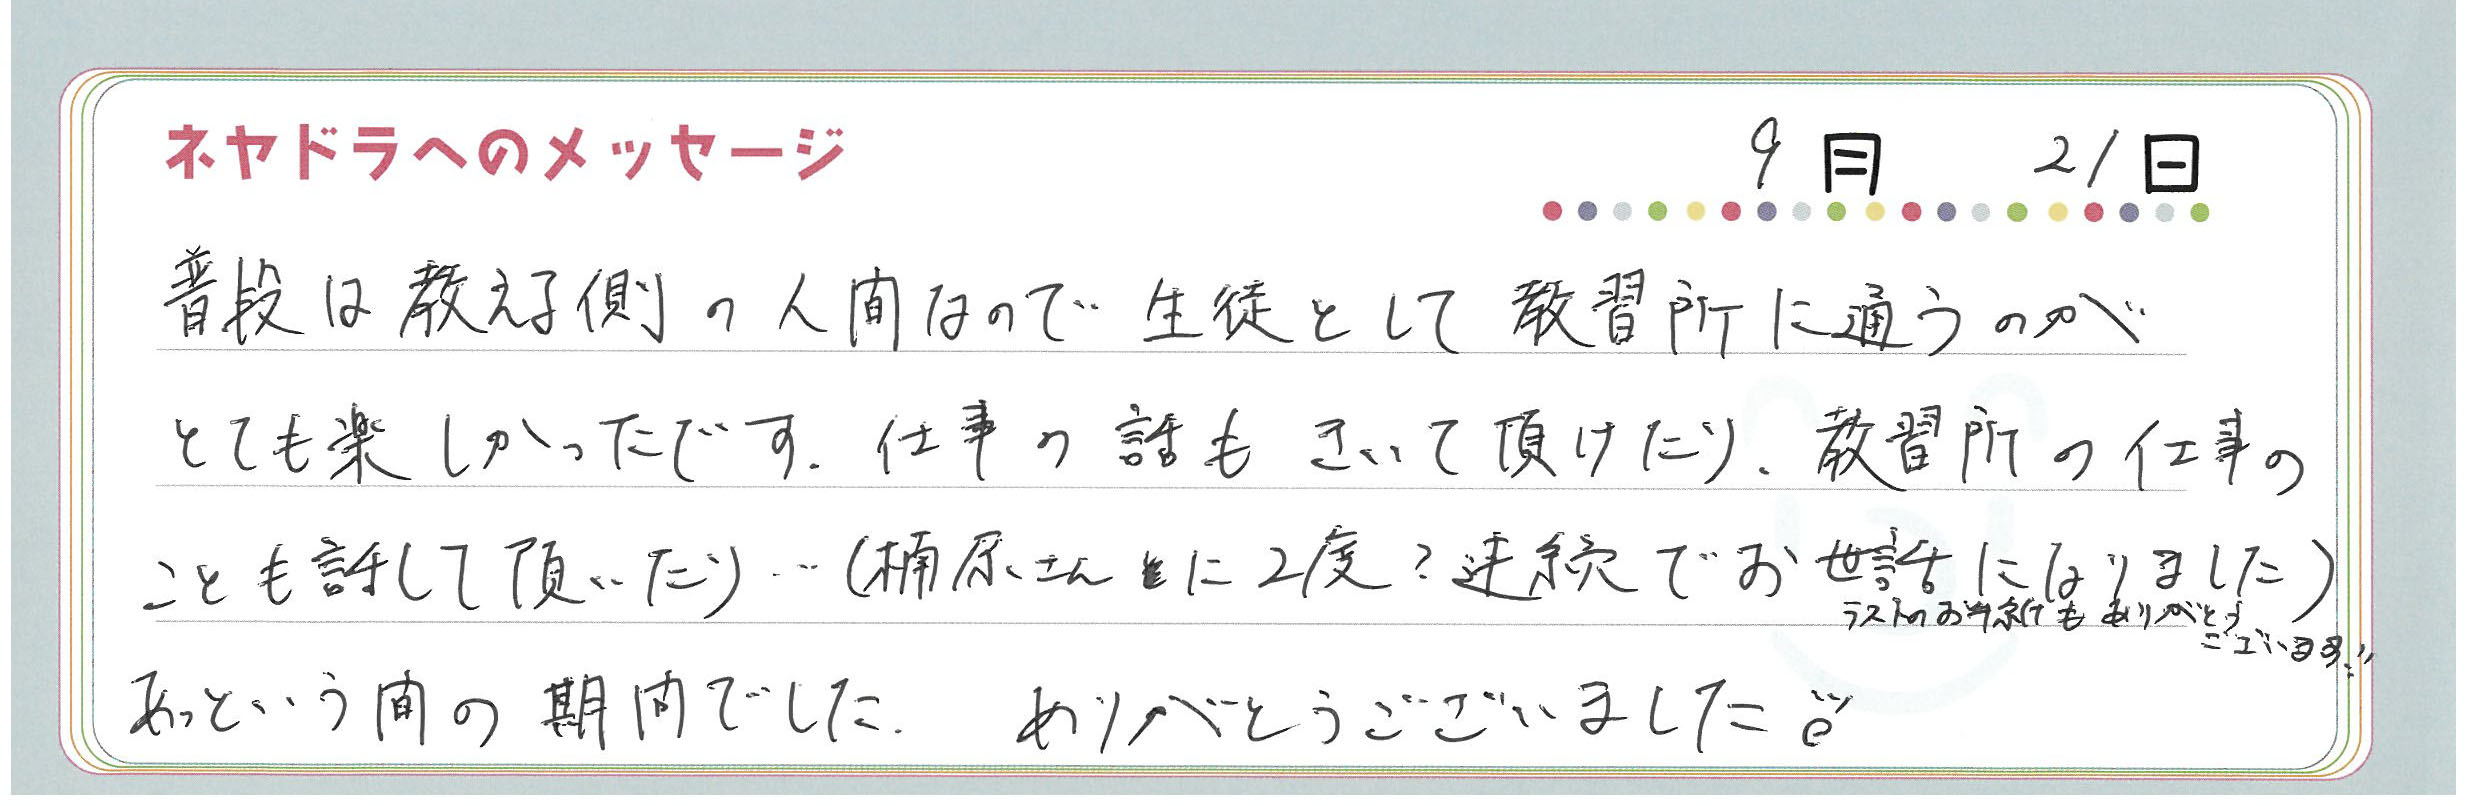 ネヤドラへのメッセージ
9月 21日
普段は教える側の人間なので生徒として教習所に通うのが
とても楽しかったです. 仕事の話もきいて頂けたり、教習所の仕事の
ことも話して頂いたり…(楠原さんに2度?連続でお世話になりました)
ラストのお手紙もありがとう
ございます!!
あっという間の期間でした. ありがとうございました